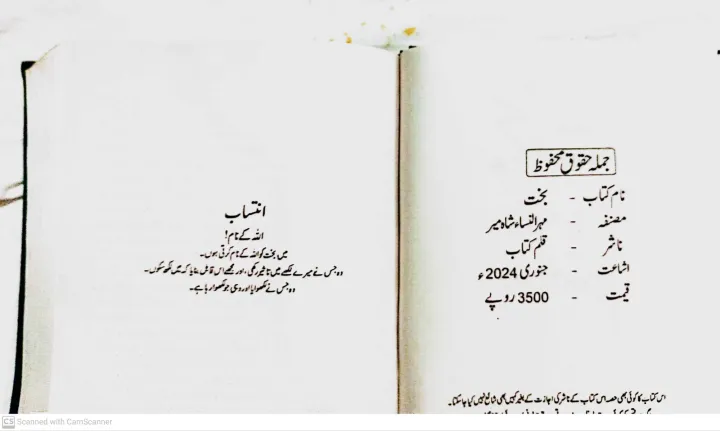 جملہ حقوق محفوظ
نام کتاب - بخت
مصنفہ - مہرالنساء شاہ میر
ناشر - قلم کتاب
اشاعت - جنوری 2024ء
قیمت - 3500 روپے
اس کتاب کا کوئی بھی حصہ اس کتاب کے ناشر کی اجازت کے بغیر کہیں بھی شائع نہیں کیا جا سکتا۔
انتساب
اللہ کے نام!
میں بخت کو اللہ کے نام کرتی ہوں۔
وہ جس نے میرے لکھے میں تاثیر رکھی، اور مجھے اس قابل بنایا کہ میں لکھ سکوں۔
وہ جس نے لکھوایا اور وہی جو لکھوا رہا ہے۔
CS Scanned with CamScanner